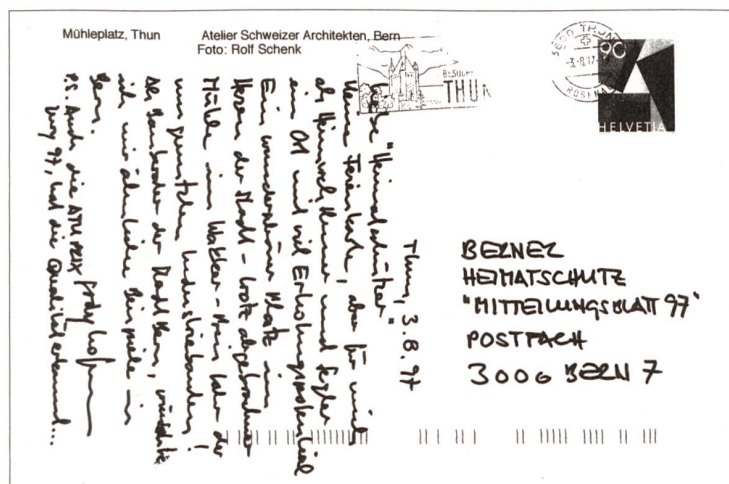 Mühleplatz, Thun
Atelier Schweizer Architekten, Bern
Foto: Rolf Schenk
BESUCHT
THUN
3600 THUN
-3.-8.97
ROSENAU
90
HELVETIA
Thun, 3.8.97
Liebe "Heimatschützer"
Keine Ferienkarte, aber für mich,
als Heimweh Thuner und Segler
ein Ort mit viel Erholungspotential
Ein wunderschöner Platz im
Herzen der Stadt - trotz abgebrochener
Mühle im Wakker-Preis Jahr der
umgenutzten Industriebauten!
Als Bauberater der Stadt Bern, wünschte
ich mir ähnliche Beispiele in
Bern.
P.S. Auch die ATU PRIX
Jury 97, hat die Qualität erkannt...
BERNER
HEIMATSCHUTZ
"MITTEILUNGSBLATT 97"
POSTFACH
3006 BERN 7